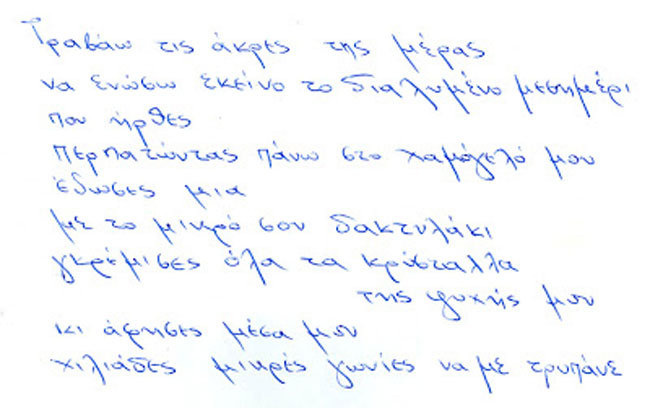 Τραβάω τις άκρες της μέρας
να ενώσω εκείνο το διαλυμένο μεσημέρι
που ήρθες
περπατώντας πάνω στο χαμόγελό μου
έδωσες μια
με το μικρό σου δακτυλάκι
γκρέμισες όλα τα κρύσταλλα
της ψυχής μου
κι άφησες μέσα μου
χιλιάδες μικρές γωνίες να με τρυπάνε